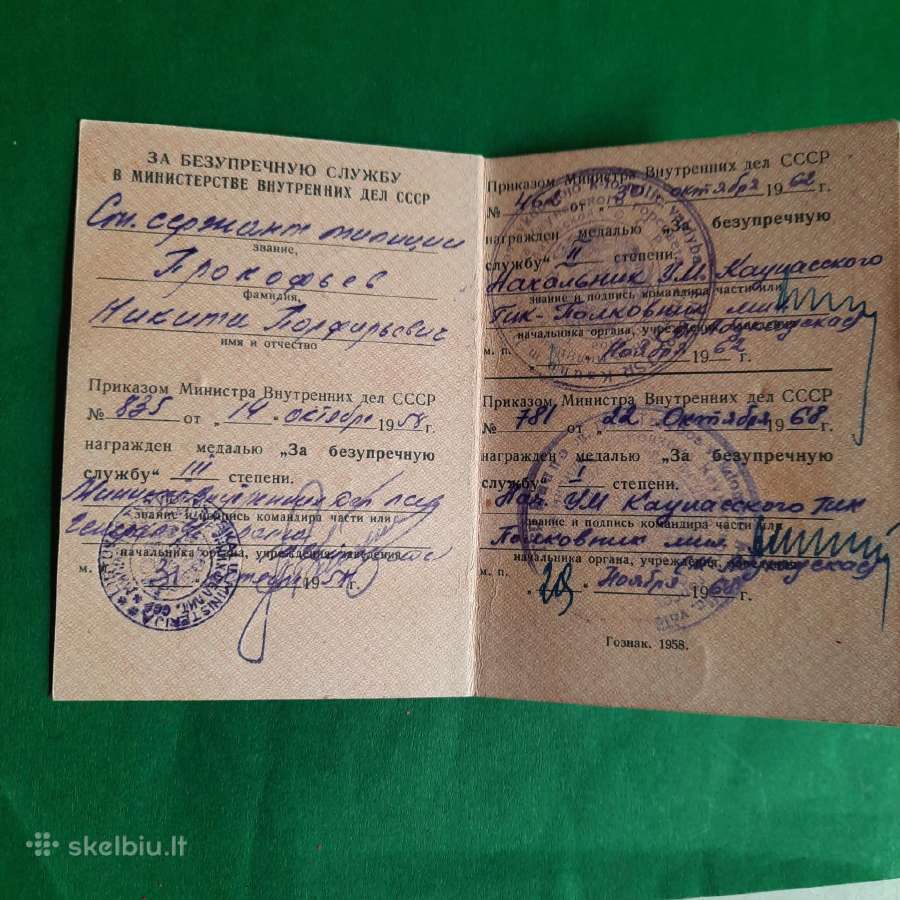 ЗА БЕЗУПРЕЧНУЮ СЛУЖБУ
В МИНИСТЕРСТВЕ ВНУТРЕННИХ ДЕЛ СССР
Ст. сержант милиции
звание,
Прокофьев
фамилия,
Никита Порфирьевич
имя и отчество
Приказом Министра Внутренних дел СССР
№ 835 от „14" октября 1958 г.
награжден медалью „За безупречную
службу" III степени.
звание и подпись командира части или
начальника органа, учреждения, заведения
м. 31 1958 г.
Приказом Министра Внутренних дел СССР
№ 462 от „30" октября 1962 г.
награжден медалью „За безупречную
службу" II степени.
Начальник УМ. Каунасского
звание и подпись командира части или
Гик-Полковник мил.
начальника органа, учреждения, заведения
м. п. Ноября 1962 г.
Приказом Министра Внутренних дел СССР
№ 781 от „22" Октября 1968 г.
награжден медалью „За безупречную
службу" I степени.
Нач. УМ Каунасского Гик
звание и подпись командира части или
Полковник мил.
начальника органа, учреждения, заведения
м. п. Ноября 1968 г.
Гознак. 1958.
skelbiu.lt